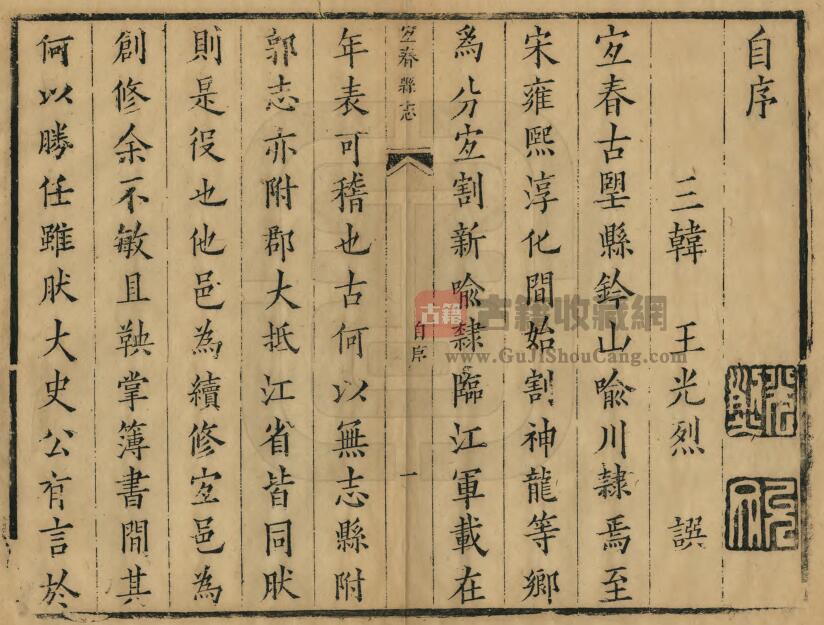 自序
三韓　王光烈　譔
宐春古壄縣鈐山喻川隷焉至
宋雍熙淳化間始割神龍等鄉
爲分宐割新喻隷臨江軍載在
宐春縣志
自序
一
年表可稽也古何以無志縣附
郭志亦附郡大抵江省皆同肰
則是役也他邑為續修宐邑為
創修余不敏且鞅掌簿書間其
何以勝任雖肰大史公有言於
古籍
古籍收藏網
www.GuJiShouCang.com